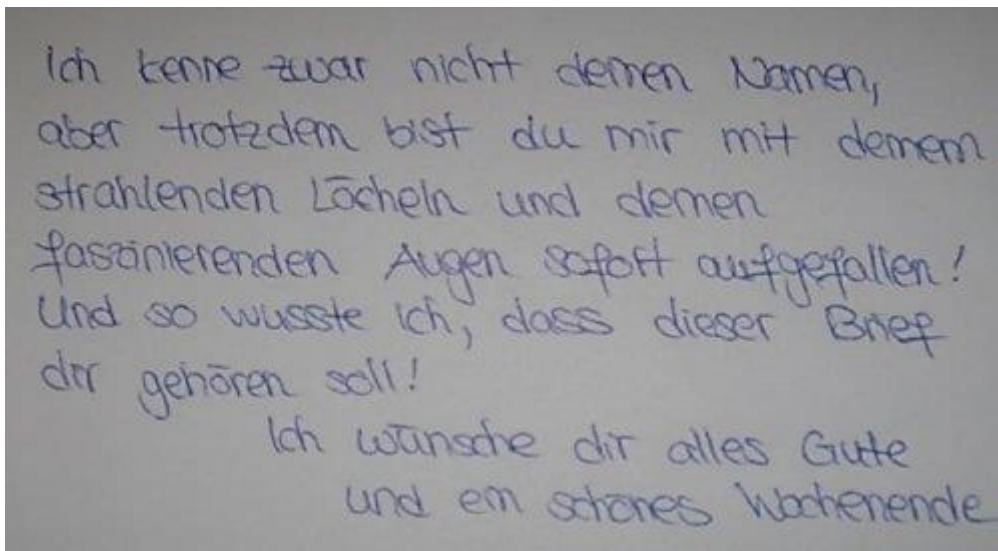 Ich kenne zwar nicht deinen Namen,
aber trotzdem bist du mir mit deinem
strahlenden Lächeln und deinen
faszinierenden Augen sofort aufgefallen!
Und so wusste ich, dass dieser Brief
dir gehören soll!
Ich wünsche dir alles Gute
und ein schönes Wochenende